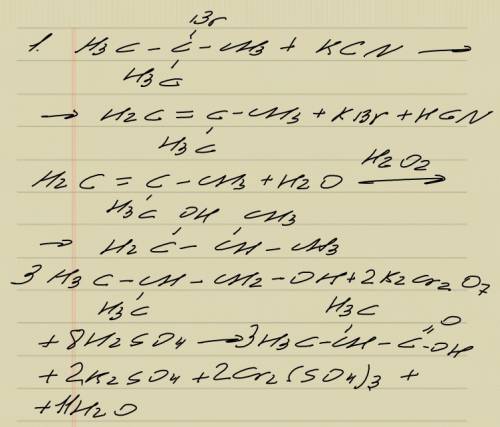 Br
1. H3C - C - CH3 + KCN →
H3C
→ H2C = C - CH3 + KBr + HCN
H3C
H2C = C - CH3 + H2O H2O2 →
H3C OH CH3
→ H2C - CH - CH3
3 H3C - CH - CH2 - OH + 2K2Cr2O7
H3C H3C O
+ 8H2SO4 → 3H3C - CH - C - OH
+ 2K2SO4 + 2Cr2(SO4)3 +
+ 11H2O